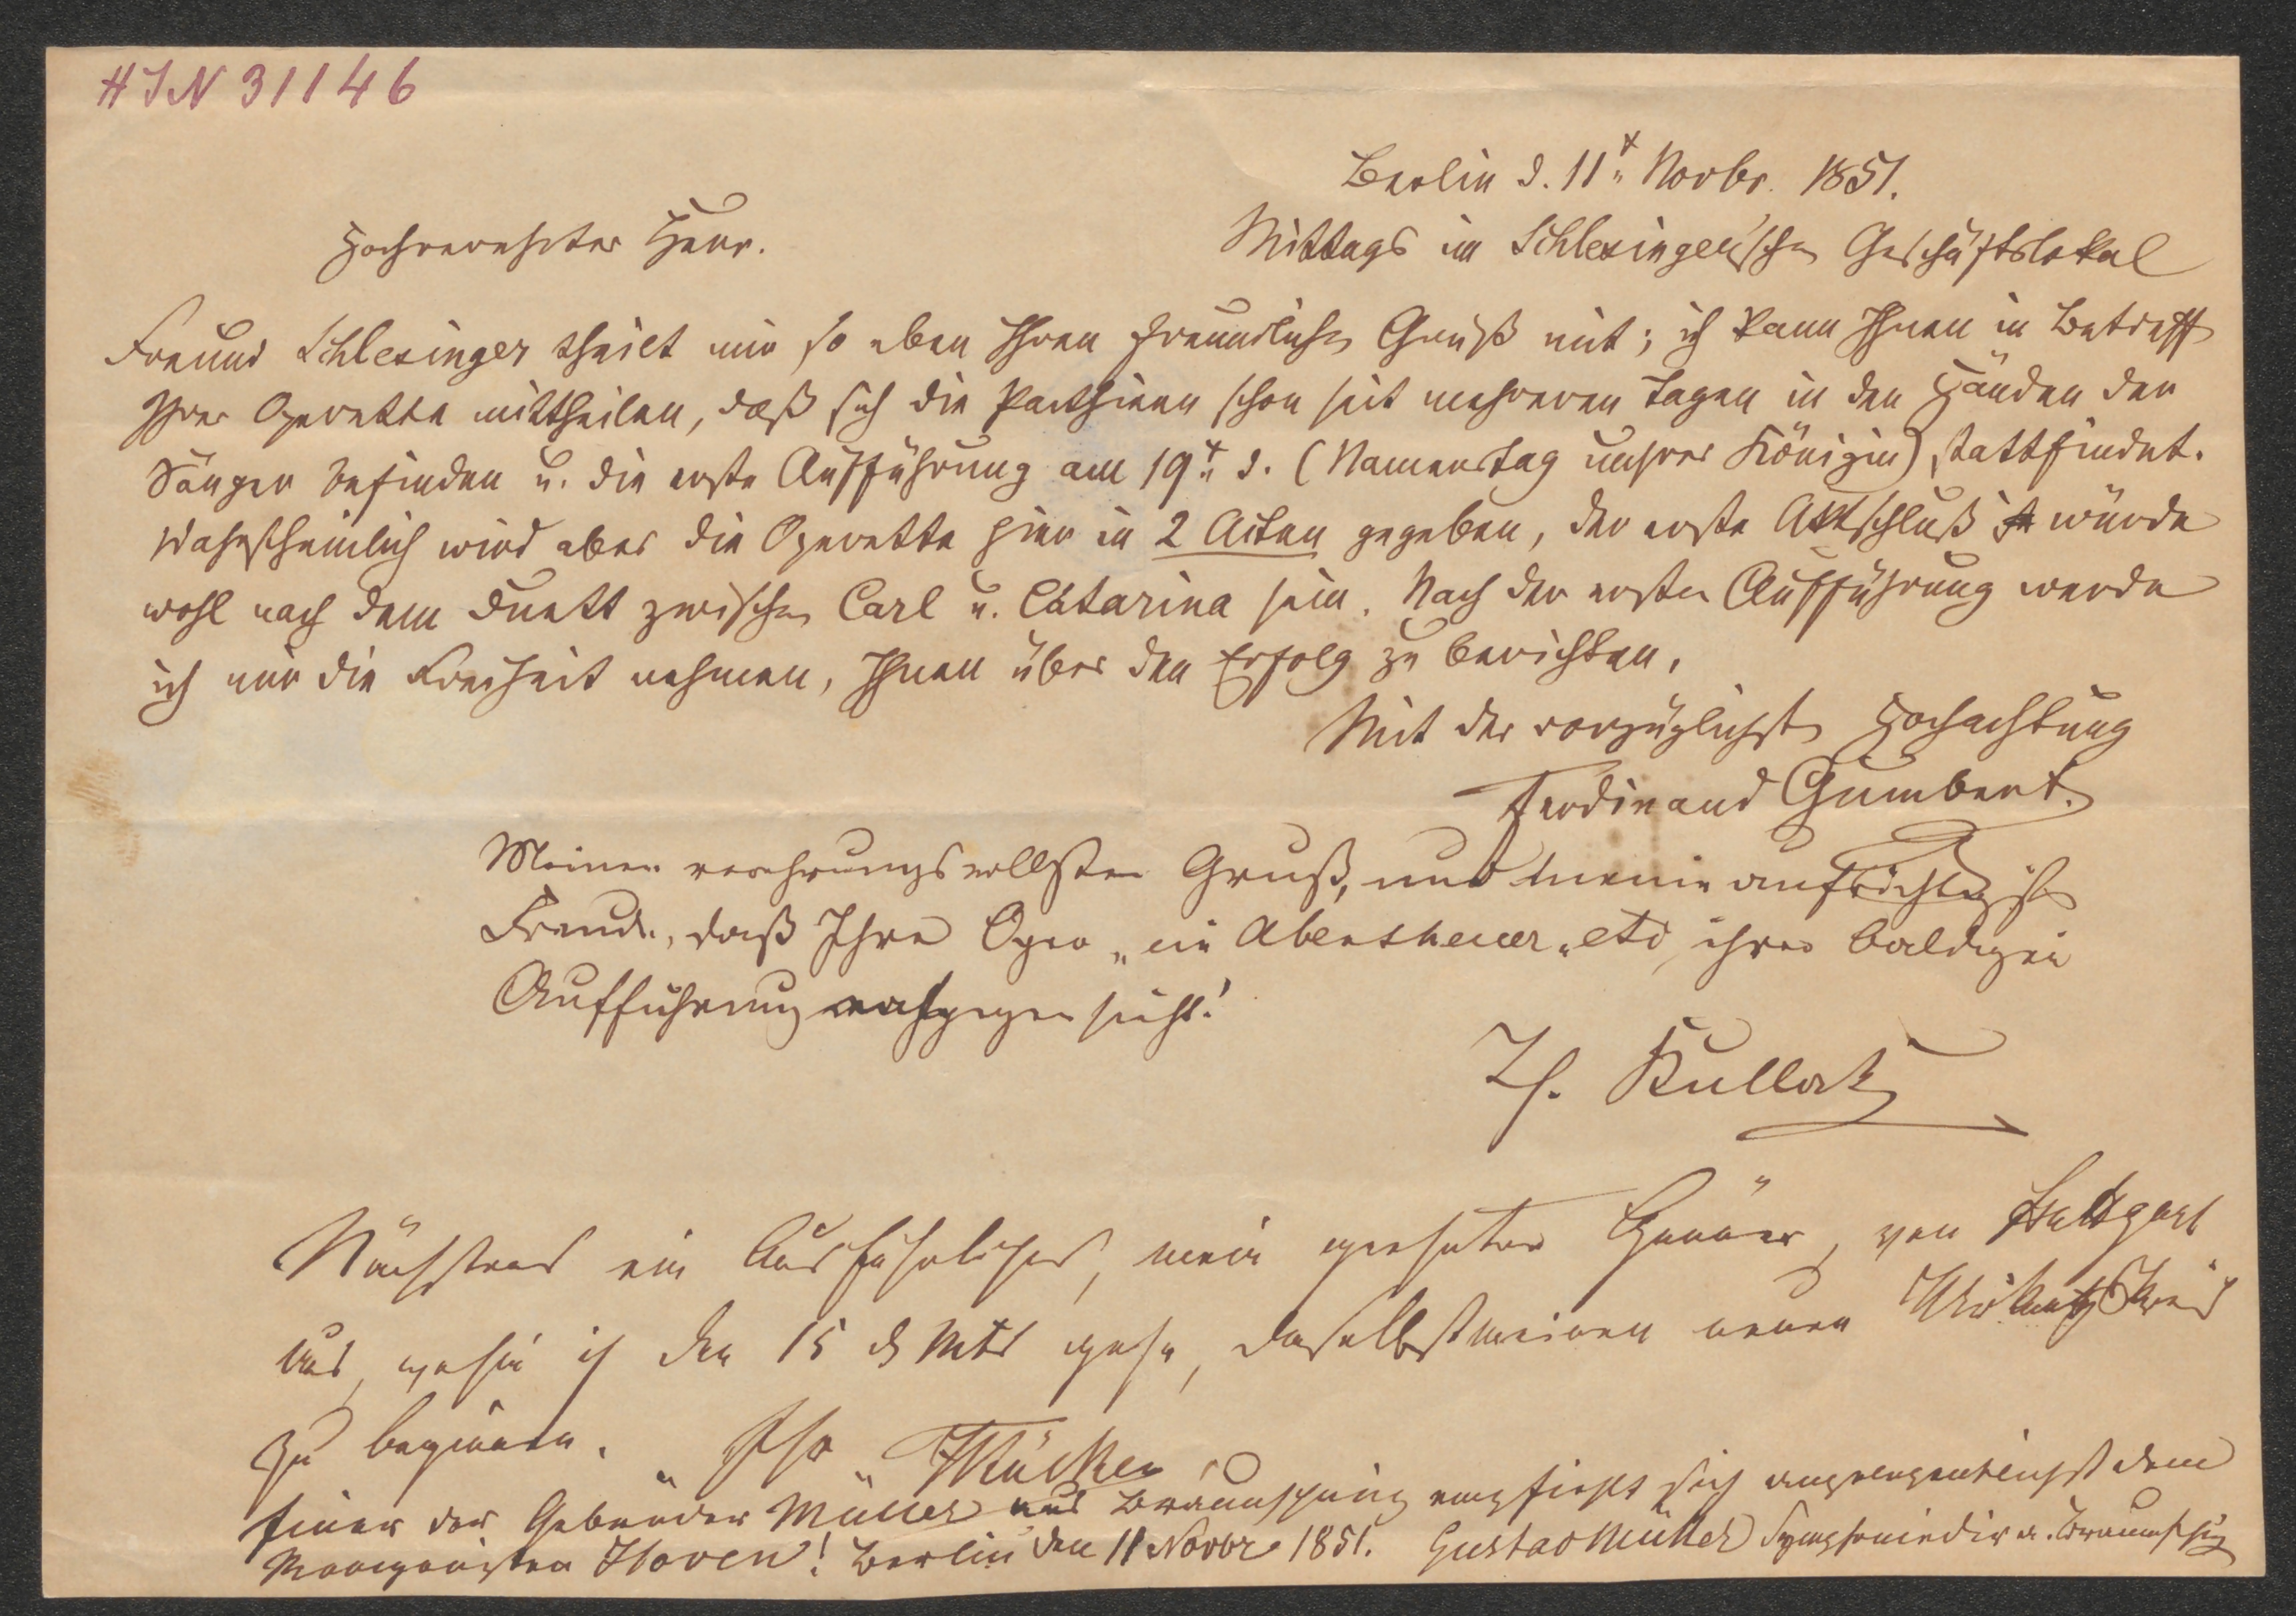 HIN 31146
Berlin d. 11t. Novbr. 1851.
Hochverehrter Herr.
Mittags im Schlesinger'schen Geschäftslokal
Freund Schlesinger theilt mir so eben Ihren freundlichen Gruß mit; ich kann Ihnen in Betreff
Ihrer Operette mittheilen, daß sich die Parthieen schon seit mehreren Tagen in den Händen der
Sänger befinden u. die erste Aufführung am 19t. d. (Namenstag unsrer Königin) stattfindet.
Wahrscheinlich wird aber die Operette hier in 2 Acten gegeben, der erste Aktschluß würde
wohl nach dem Duett zwischen Carl u. Catarina sein. Nach der ersten Aufführung werde
ich mir die Freiheit nehmen, Ihnen über den Erfolg zu berichten.
Mit der vorzüglichsten Hochachtung
Ferdinand Gumbert.
Meinen verehrungsvollsten Gruß, und meine aufrichtigste
Freude, daß Ihre Oper „ein Abentheuer" etc ihrer baldigen
Aufführung entgegen sieht!
Th. Kullak
Nächstens ein Ausführliches, mein geehrter Gönner, von Stuttgart
aus, wohin ich den 15 ds Mts gehe, daselbst meinen neuen
zu beginnen. Ihr Kücken
Einer der Gebrüder Müller aus Braunschweig empfiehlt sich angelegentlichst dem
Componisten Hoven! Berlin den 11 Novbr 1851. Gustav Müller Symphoniedir a. Braunschweig